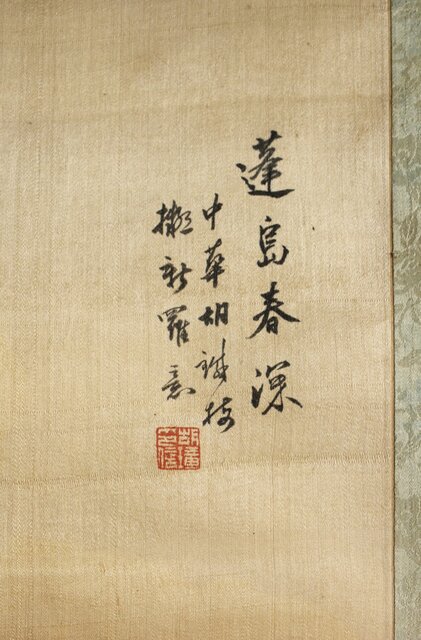 蓬島春深
中華胡鐵梅
擬新羅意
胡璋